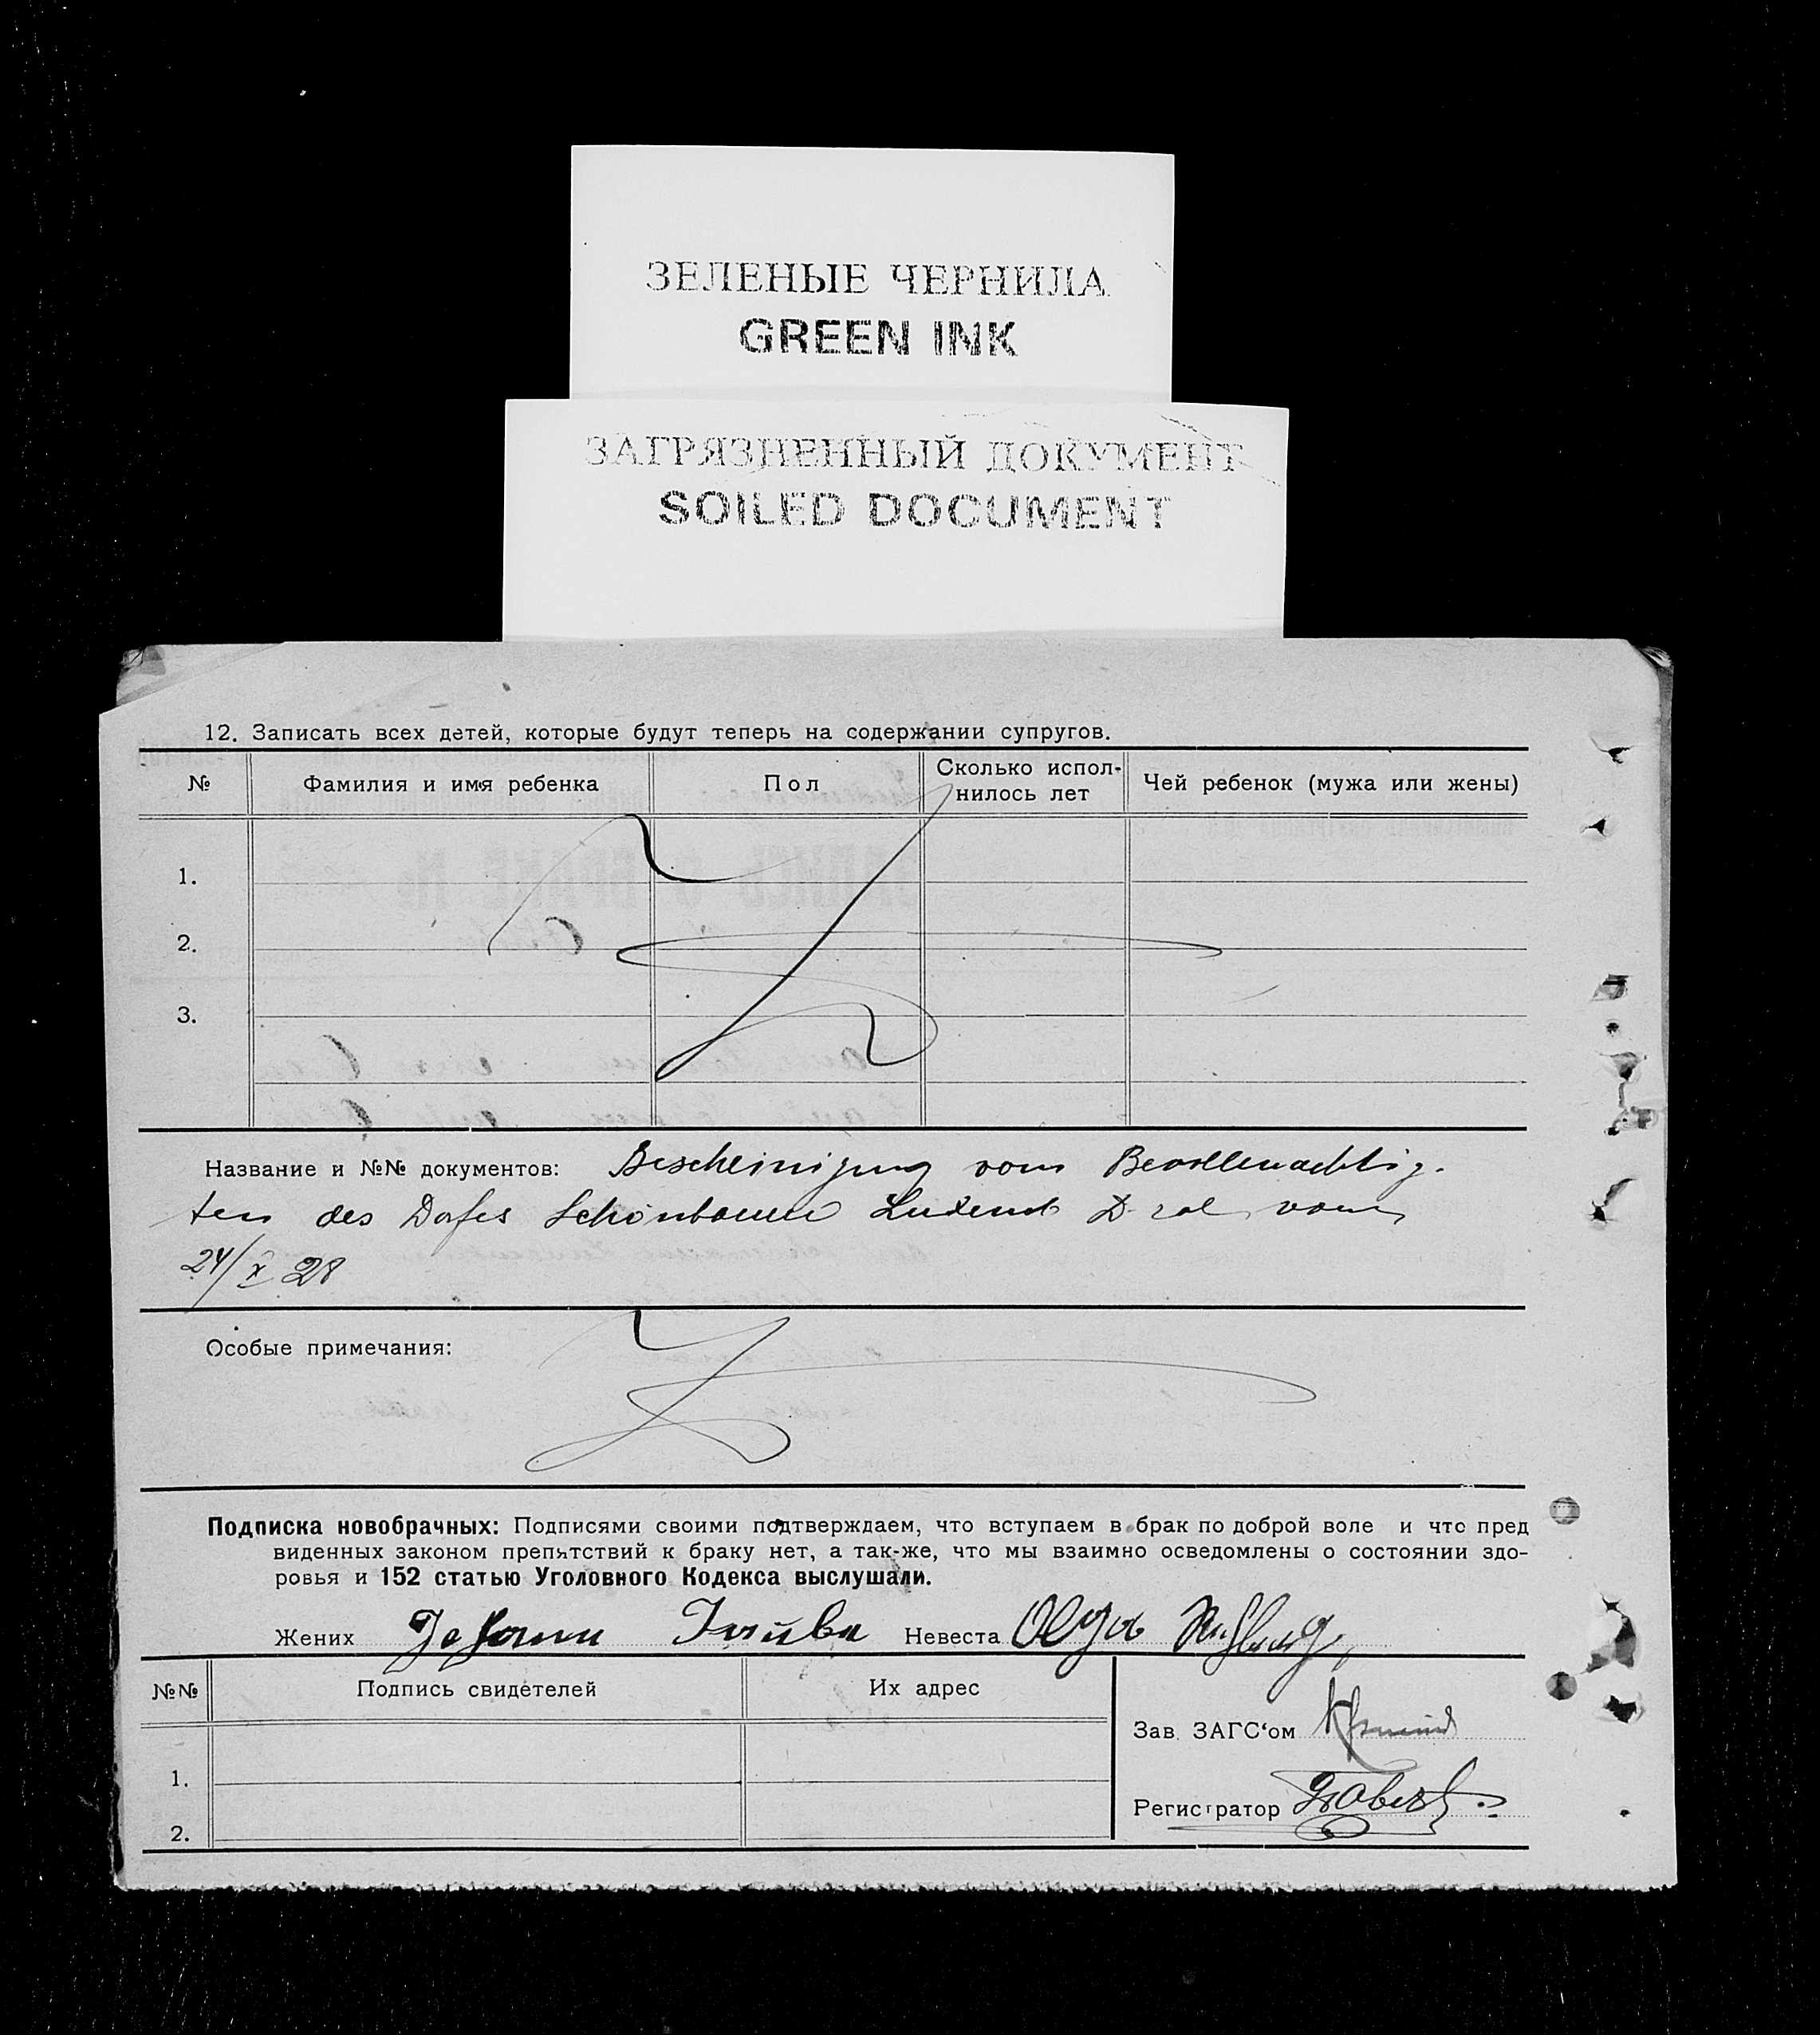 ЗЕЛЕНЫЕ ЧЕРНИЛА
GREEN INK
ЗАГРЯЗНЕННЫЙ ДОКУМЕНТ
SOILED DOCUMENT
12. Записать всех детей, которые будут теперь на содержании супругов.
№ Фамилия и имя ребенка Пол Сколько испол-
нилось лет Чей ребенок (мужа или жены)
1.
2.
3.
Название и №№ документов: Bescheinigung vom Bevollmächtig-
ten des Dofes Schönbaum vom
24/X 28
Особые примечания:
Подписка новобрачных: Подписями своими подтверждаем, что вступаем в брак по доброй воле и что пред
виденных законом препятствий к браку нет, а так-же, что мы взаимно осведомлены о состоянии здо-
ровья и 152 статью Уголовного Кодекса выслушали.
Жених Johann Невеста Olga
№№ Подпись свидетелей Их адрес
Зав. ЗАГС‘ом
1.
Регистратор
2.